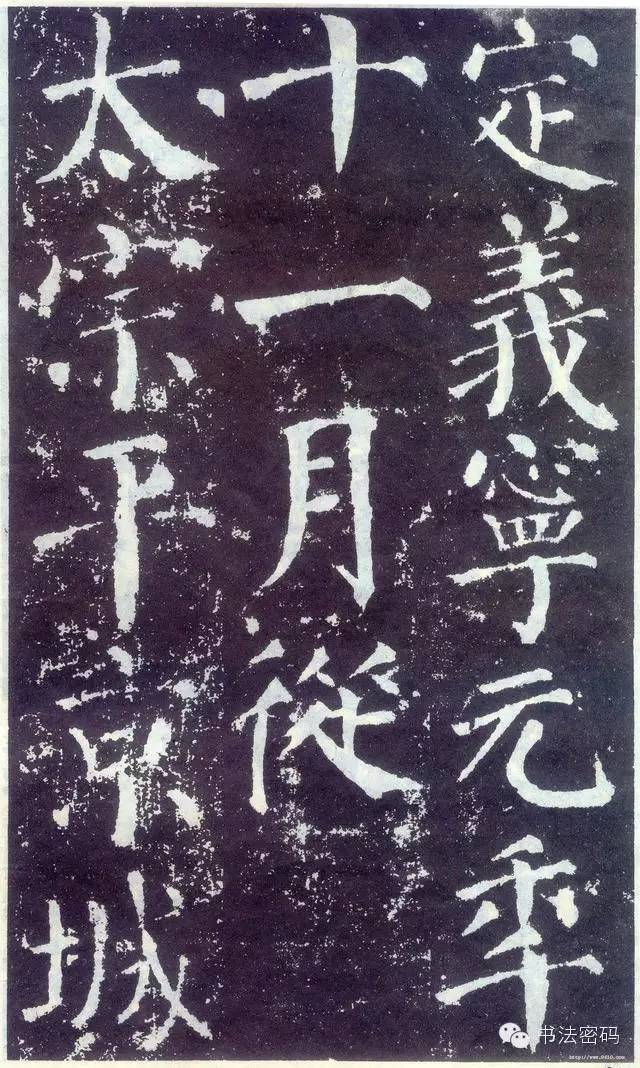 定義寧元年
十一月從
太宗平京城
书法密码
http://www.9610.com